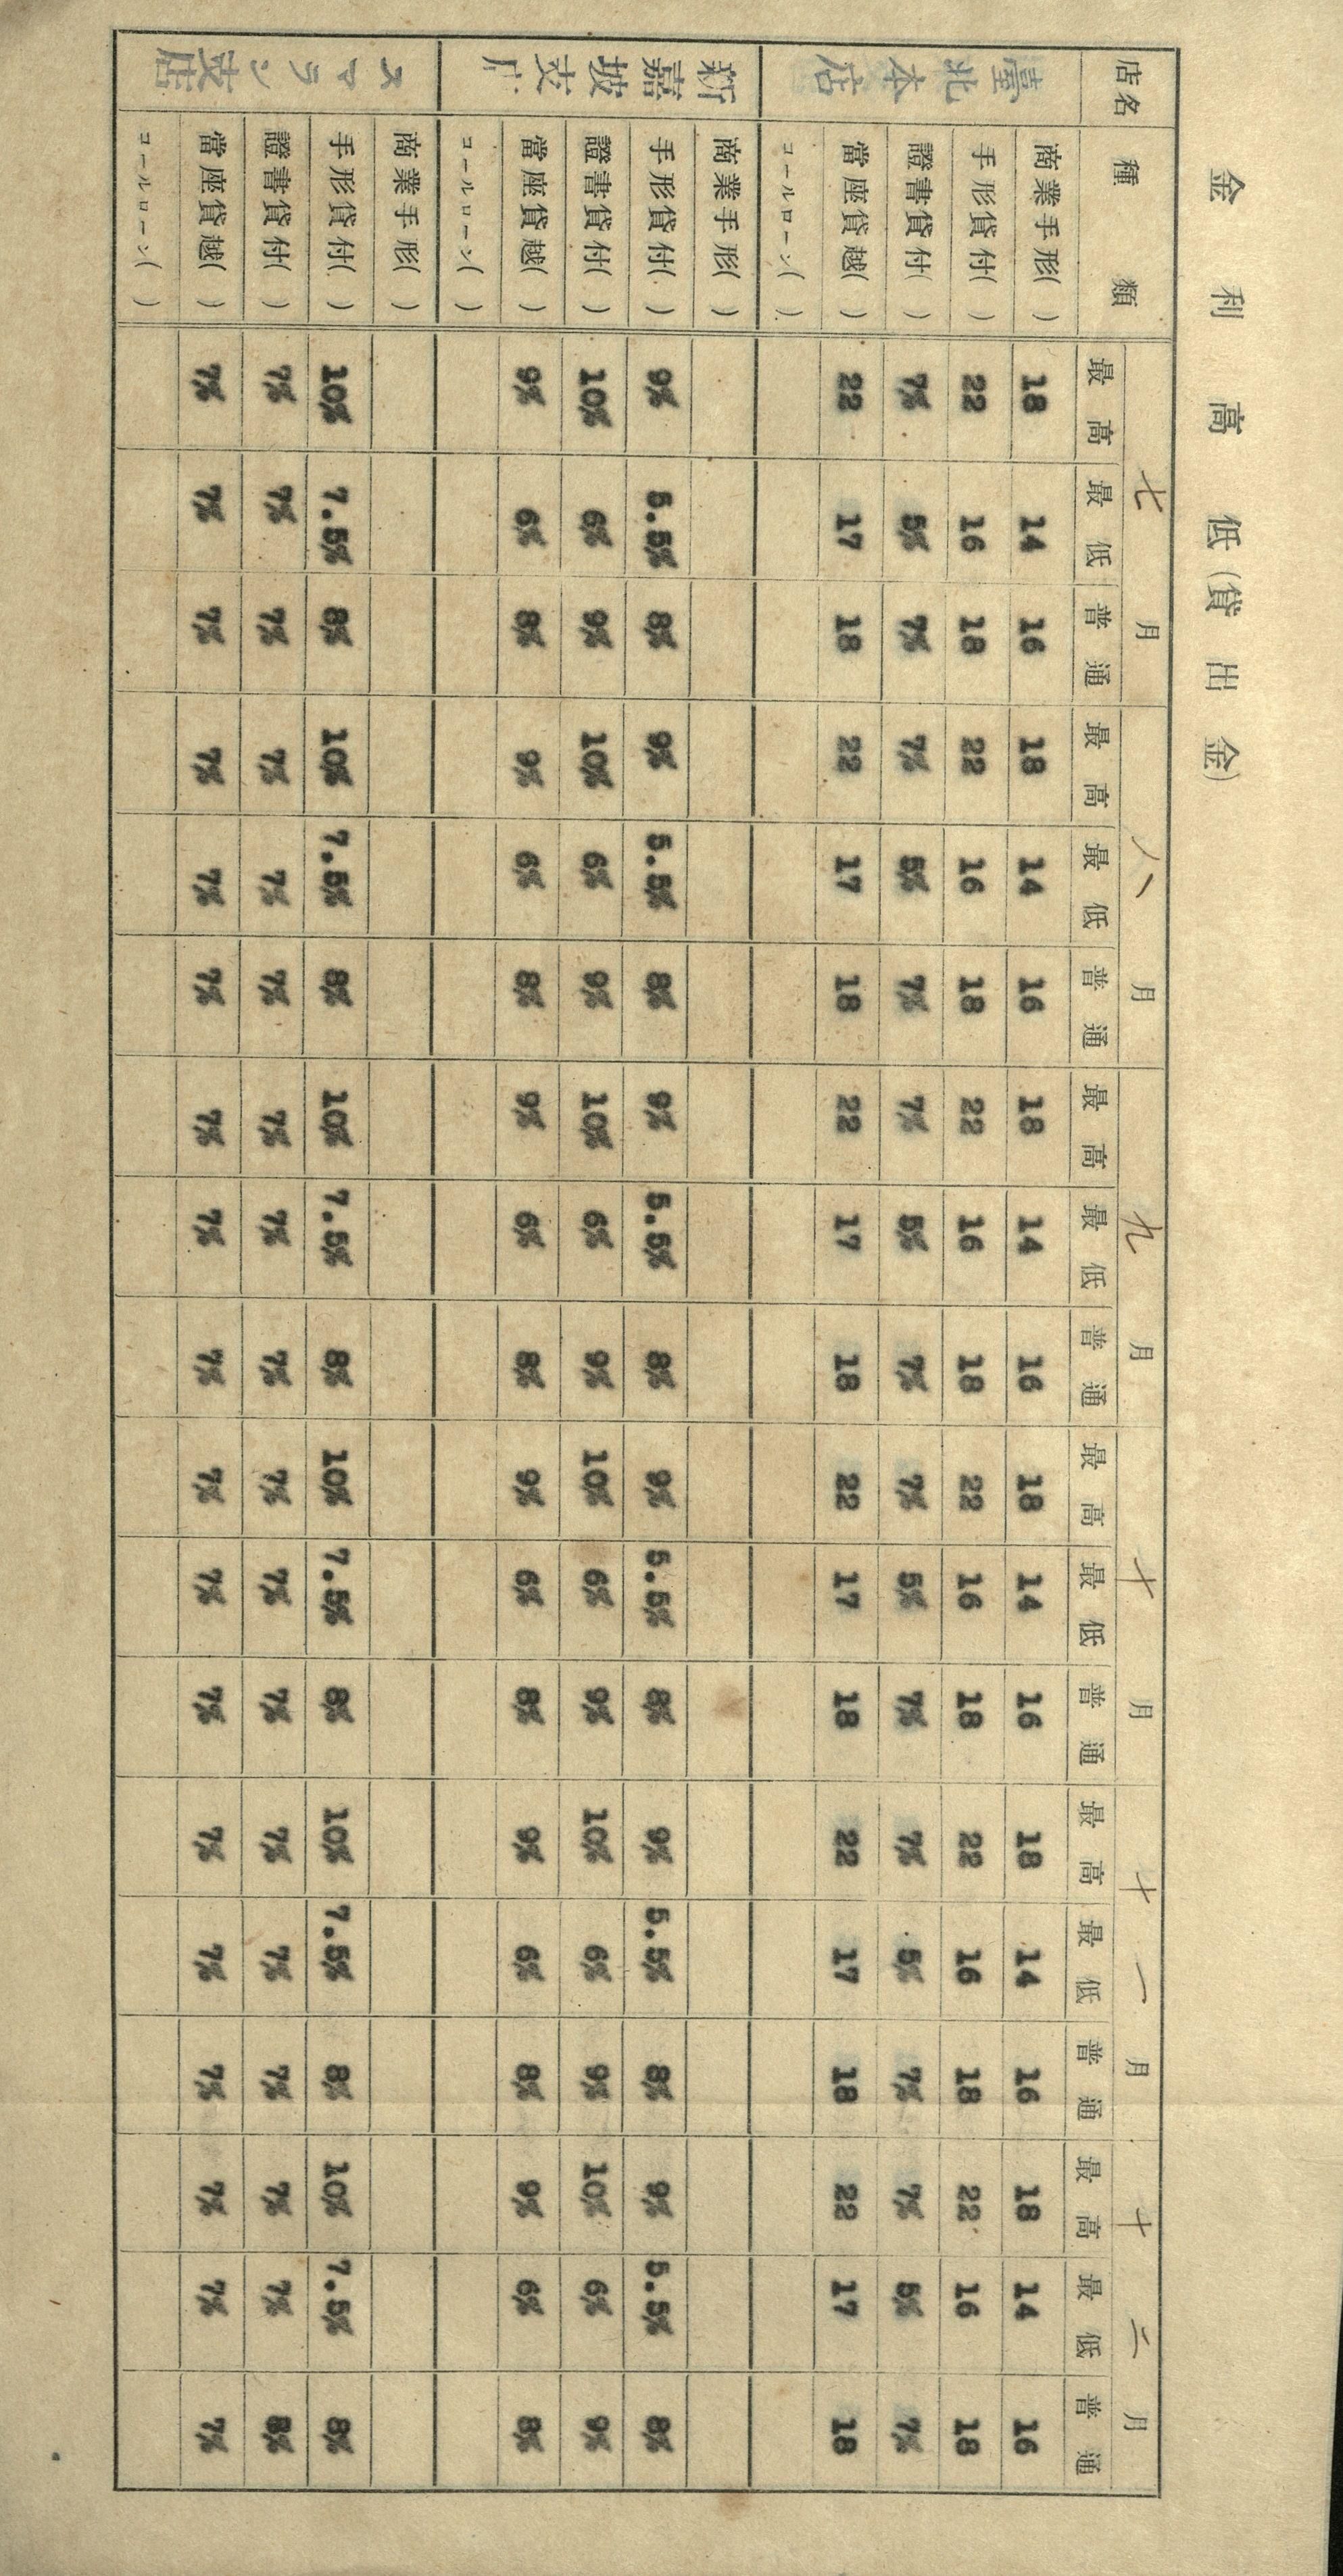 金利高低(貸出金)
店名 種類 七月 八月 九月 十月 十一月 十二月
最高 最低 普通 最高 最低 普通 最高 最低 普通 最高 最低 普通 最高 最低 普通 最高 最低 普通
臺北本店
商業手形( ) 18 14 16 18 14 16 18 14 16 18 14 16 18 14 16 18 14 16
手形貸付( ) 22 16 18 22 16 18 22 16 18 22 16 18 22 16 18 22 16 18
證書貸付( ) 7% 5% 7% 7% 5% 7% 7% 5% 7% 7% 5% 7% 7% 5% 7% 7% 5% 7%
當座貸越( ) 22 17 18 22 17 18 22 17 18 22 17 18 22 17 18 22 17 18
コールローン( )
新嘉坡支店
商業手形( )
手形貸付( ) 9% 5.5% 8% 9% 5.5% 8% 9% 5.5% 8% 9% 5.5% 8% 9% 5.5% 8% 9% 5.5% 8%
證書貸付( ) 10% 6% 9% 10% 6% 9% 10% 6% 9% 10% 6% 9% 10% 6% 9% 10% 6% 9%
當座貸越( ) 9% 6% 8% 9% 6% 8% 9% 6% 8% 9% 6% 8% 9% 6% 8% 9% 6% 8%
コールローン( )
スマラン支店
商業手形( )
手形貸付( ) 10% 7.5% 8% 10% 7.5% 8% 10% 7.5% 8% 10% 7.5% 8% 10% 7.5% 8% 10% 7.5% 8%
證書貸付( ) 7% 7% 7% 7% 7% 7% 7% 7% 7% 7% 7% 7% 7% 7% 7% 7% 7% 8%
當座貸越( ) 7% 7% 7% 7% 7% 7% 7% 7% 7% 7% 7% 7% 7% 7% 7% 7% 7% 7%
コールローン( )